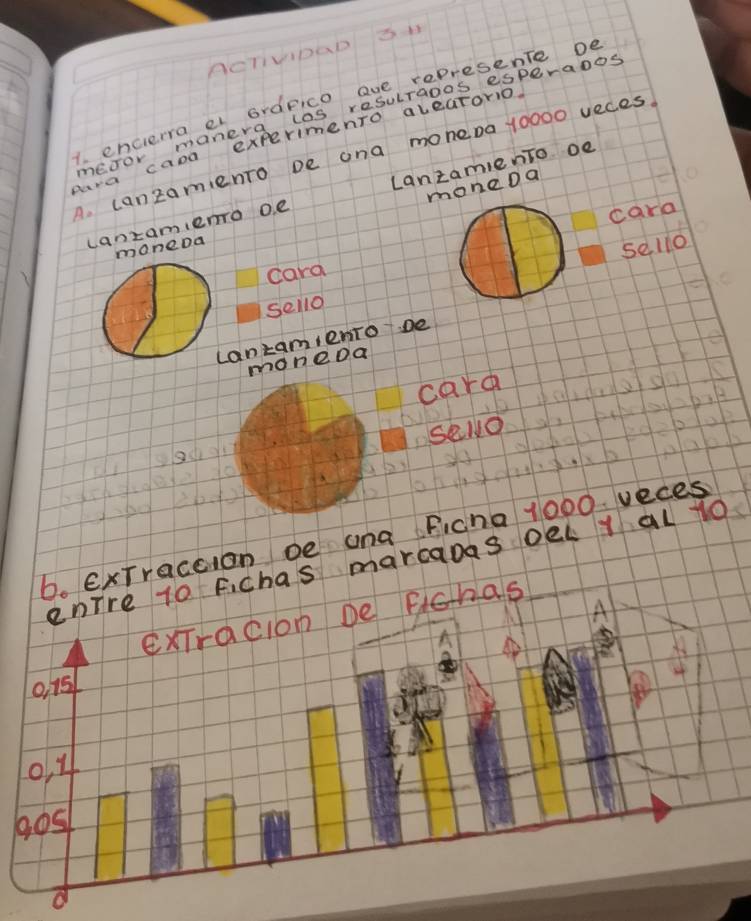 ACTIVIDAD 3
1. encierra el Gráfico que represente de
mejor manera las resultados esperados
para cada experimento aleatorio.
A. Lanzamiento de una moneda 10000 veces.
Lanzamiento de
moneda
cara
sello
Lanzamiento de
moneda
cara
sello
Lanzamiento de
moneda
cara
sello
b. extraccion de una ficha 1000 veces
entre 10 fichas marcadas del 1 al 10
extracion de fichas
0,15
0,1
0,05
0
A
A
A